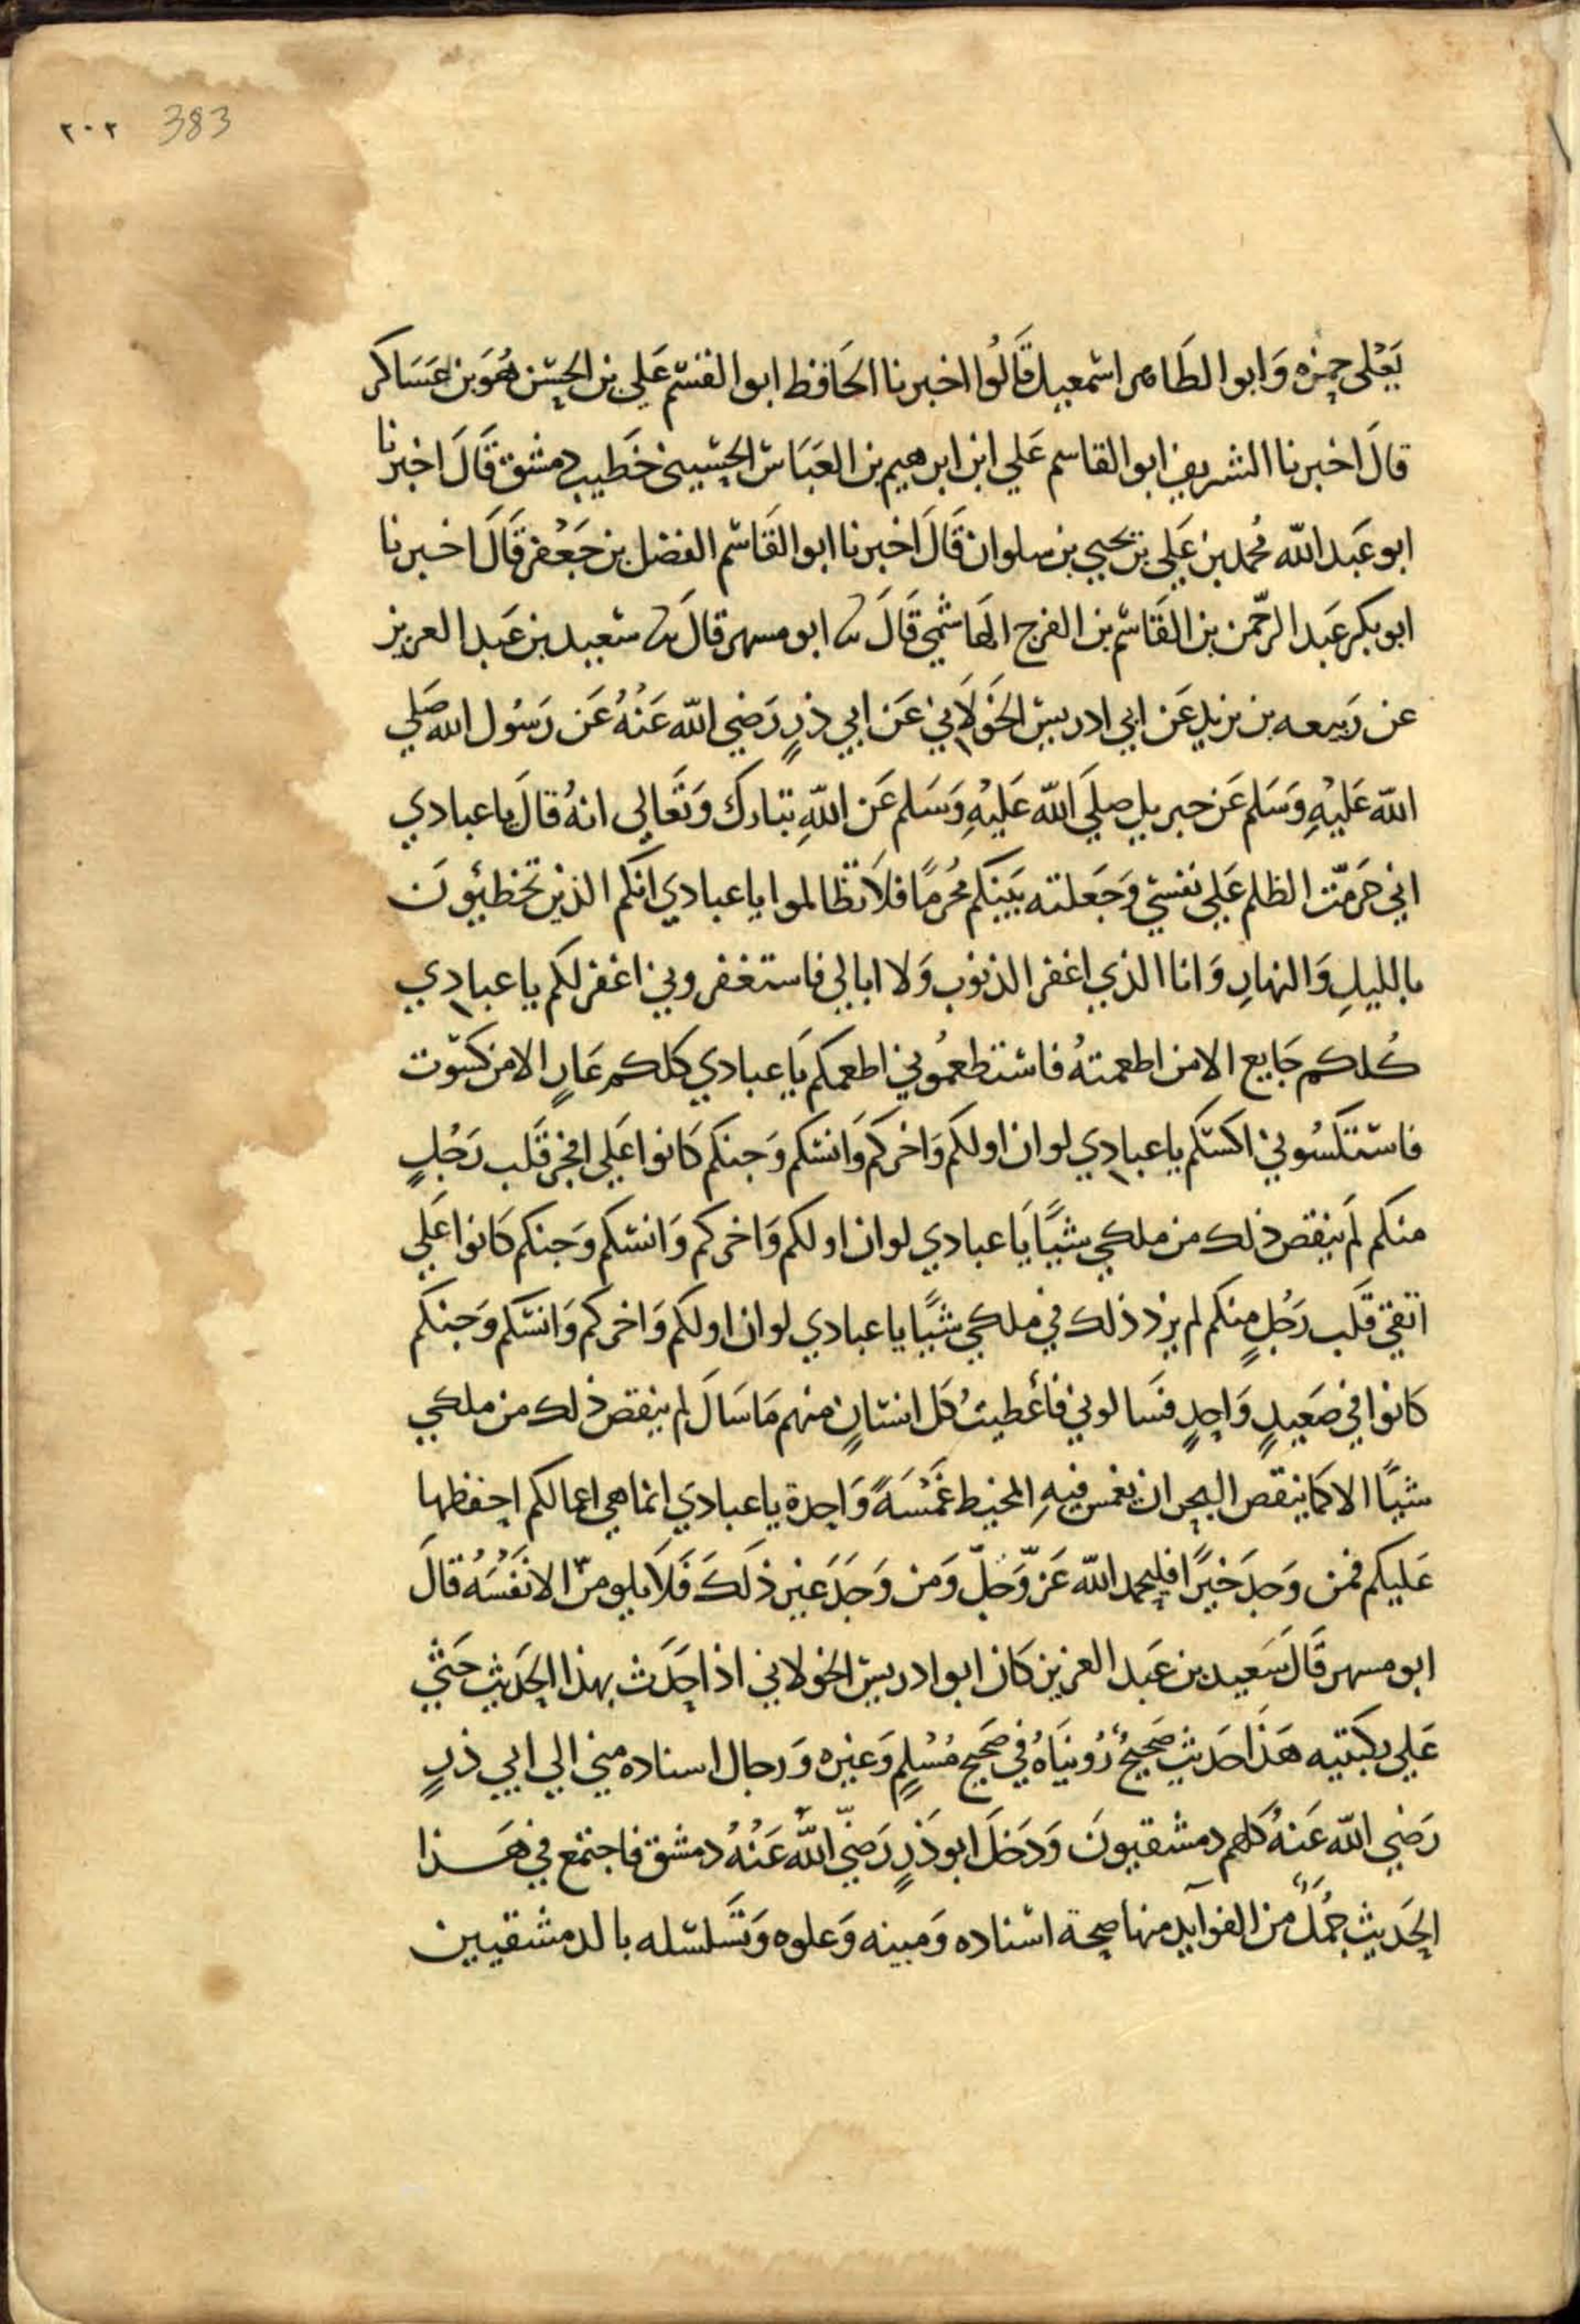 ٢٠٢ 383
يَعْلى حمزه وَابوا الطَاهر اسمعيل قَالُوا اخبرنا الحَافظ ابوا القسم عَلي بن الحسن هُوَ بن عَسَاكر
قالَ اخبرنا الشريف ابوا القاسم عَلي ابن ابرهيم بن العَبَاس الحسيني خَطيب دمشق قَالَ اخبرنا
ابو عَبد الله مُحمد بن عَلي بن يحيي بن سلوان قَالَ اخبرنا ابوا القَاسم الفضل بن جَعْفر قَالَ اخبرنا
ابو بكر عَبد الرحّمن بن القَاسم بن الفرج الهَاشمي قَالَ ثنا ابو مسهر قالَ ثنا سعيد بن عَبد العزيز
عن رَبيعه بن يزيد عَن ابي ادريس الخَولَاني عَن ابي ذرٍ رَضي الله عَنْهُ عَن رَسُول الله صَلي
الله عَليْهِ وَسَلم عَن جبريل صلي الله عَليْهِ وَسَلم عَن اللهِ تبَارك وَتعَالي انهُ قالَ يا عبادي
اني حَرمّت الظلم عَلي نفسي وَجَعلته بَينكم مُحَرمًا فلا تظالموا يا عبادي انكم الذين تخطئونَ
بالليلِ وَالنهارِ وَانا الذي اغفر الذنوب وَلا ابالي فاستغفروني اغفر لكم يا عبادي
كُلكم جَايع الا من اطعمتهُ فاستطعمُوني اطعمكم يَا عبادي كلكم عَارٍ الا من كسَوت
فاستكسُوني اكسكم يا عبادي لو ان اولكم وَاخركم وَانسكم وَجنكم كَانوا عَلي افجر قَلب رَجُلٍ
منكم لَم ينقص ذلك من ملكي شيًا يَا عبادي لو ان اولكم وَاخركم وَانسكم وَجنكم كَانوا عَلي
اتقي قَلب رَجُلٍ منكم لم يزد ذلك في ملكي شيًا يا عبادي لو ان اولكم وَاخركم وَانسَكم وَجنكم
كَانوا في صَعيدٍ وَاحدٍ فسَالوني فأعطيتُ كل انسانٍ منهم مَا سَالَ لم ينقص ذلك من ملكي
شيًا الا كما ينقص البحر ان يغمس فيهِ المخيط غَمْسَةً وَاحدة يا عبادي انما هي اعمالكم احفظها
عَليكم فمن وَجدَ خيَرًا فليحمد الله عَزّ وَجلّ وَمن وَجَدَ غير ذلَكَ فَلا يلومنّ الا نفسُه قالَ
ابو مسهر قَالَ سَعيد بن عَبد العزيز كَان ابو ادريس الخولاني اذا حَدَث بهذا الحَديث جَثي
عَلي ركبَتيه هَذَا حَديث صَحيحٌ رُوينَاهُ في صَحيح مُسْلمٍ وَغيره وَرجال اسناده مني الي ابي ذرٍ
رَضي الله عَنهُ كلهم دمشقيونَ وَدَخلَ ابو ذَرٍ رَضيّ الله عَنْهُ دمشق فاجتمع في هَذا
الحَديث جُملٌ من الفوآيد منها صحة اسناده وَمتنه وَعلوه وَتَسَلسله بالدمشقيين